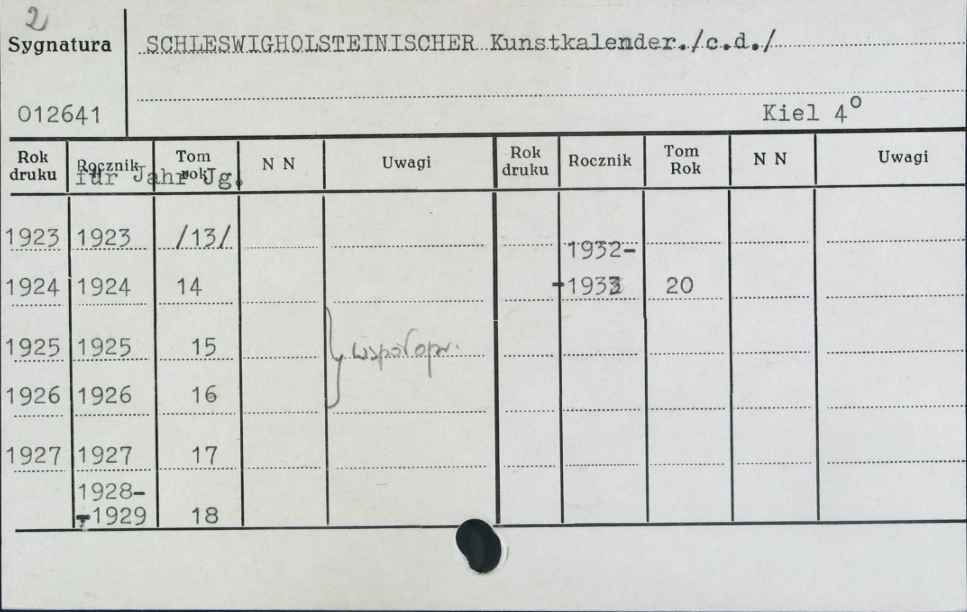 2
Sygnatura SCHLESWIGHOLSTEINISCHER Kunstkalender./c.d./
012641 Kiel 4°
Rok druku Rocznik Tom rok N N Uwagi Rok druku Rocznik Tom Rok N N Uwagi
für Jahr Jg.
1923 1923 /13/
1932-
1924 1924 14 -1933 20
1925 1925 15 współopr.
1926 1926 16
1927 1927 17
1928-
-1929 18